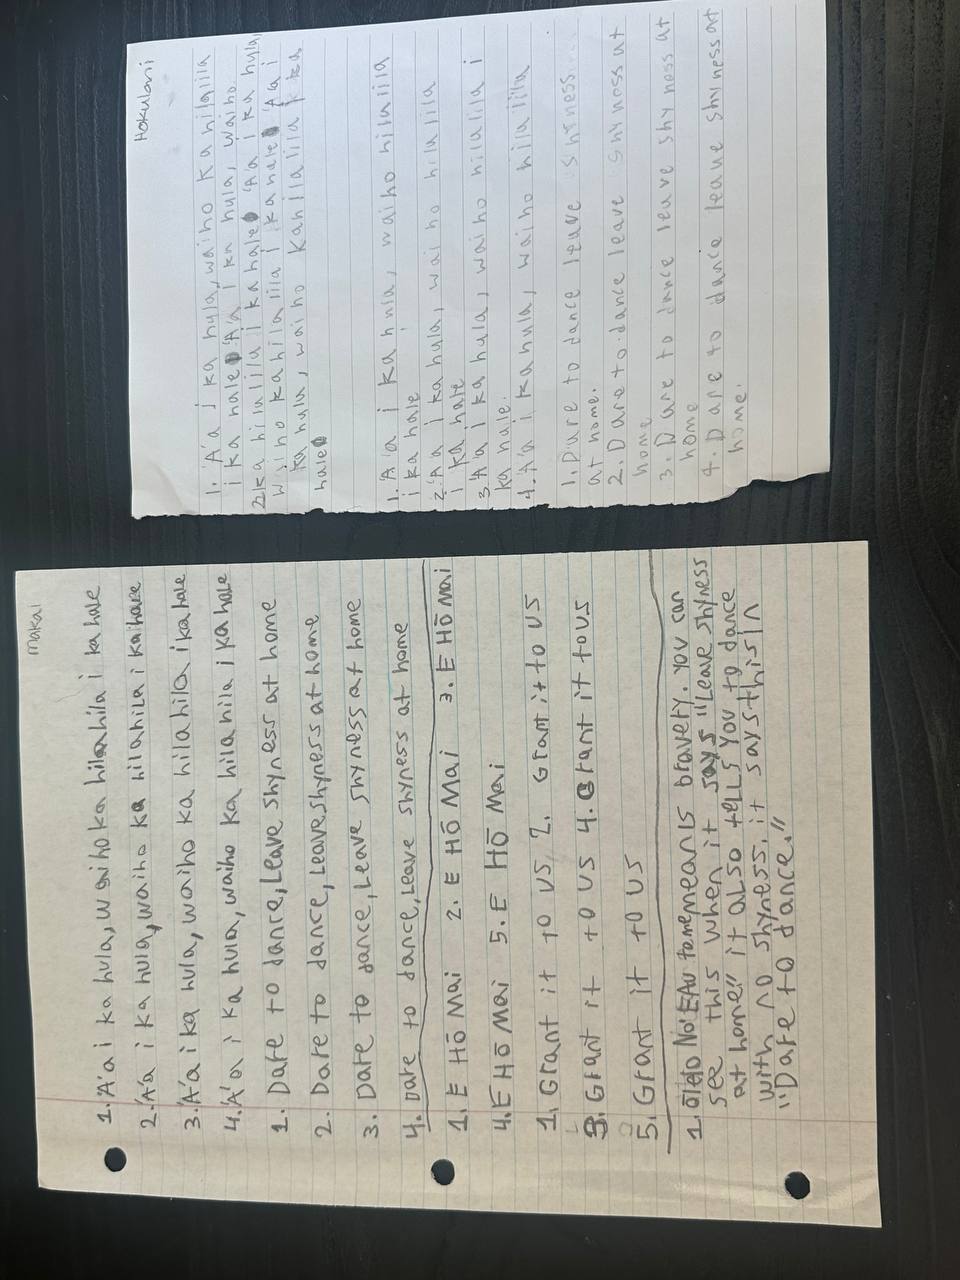 Makai
1. 'A'a i ka hula, waiho ka hilahila i ka hale
2. 'A'a i ka hula, waiho ka hilahila i ka hale
3. 'A'a i ka hula, waiho ka hilahila i ka hale
4. 'A'a i ka hula, waiho ka hila hila i ka hale
1. Dare to dance, Leave shyness at home
2. Dare to dance, Leave shyness at home
3. Dare to dance, Leave shyness at home
4. Dare to dance, Leave shyness at home
1. E HŌ Mai 2. E HŌ Mai 3. E HŌ Mai
4. E HŌ Mai 5. E HŌ Mai
1. Grant it to us 2. Grant it to us
3. Grant it to us 4. Grant it to us
5. Grant it to us
1. ōlelo No'EAu to me means bravery. You can
see this when it says "Leave shyness
at home" it also tells you to dance
with no shyness. it says this in
"Dare to dance."
Hokulani
1. 'A'a i ka hula, waiho ka hilalila
i ka hale 'A'a i ka hula, waiho
2 ka hilalila i ka hale 'A'a i ka hula
waiho ka hila lila i ka hale 'A'a i
ka hula, waiho kahilalila i ka
hale
1. 'A'a i ka hula, waiho hilalila
i ka hale
2. 'A'a i ka hula, waiho hilalila
i ka hale
3. 'A'a i ka hula, waiho hilalila i
ka hale.
4. 'A'a i kahula, waiho hilalila
1. Dare to dance leave shyness
at home.
2. Dare to dance leave shyness at
home
3. Dare to dance leave shyness at
home
4. Dare to dance leave shyness at
home.